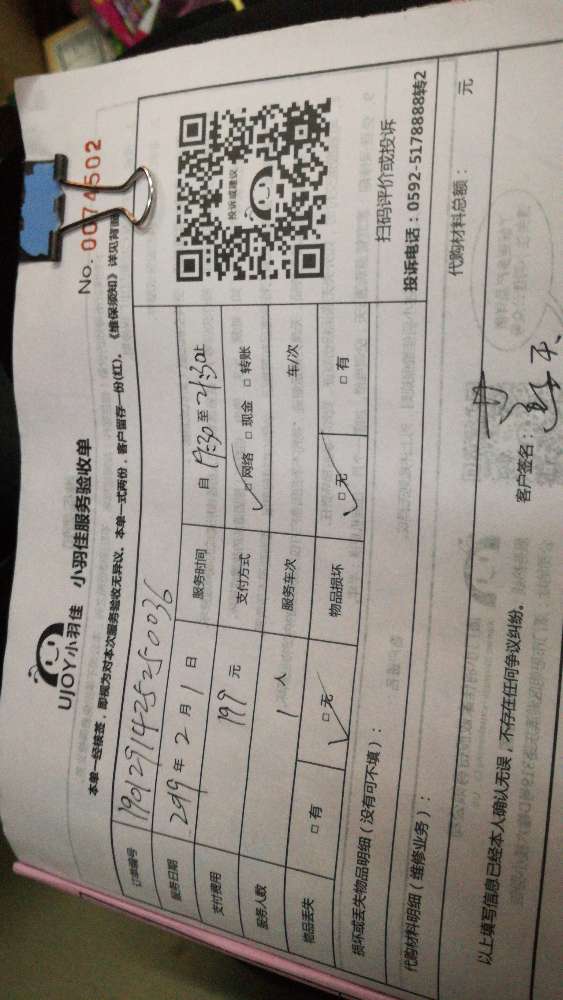 No. 0074502
UJOY小羽佳 小羽佳服务验收单
本单一经核签，即视为对本次服务验收无异议。本单一式两份，客户留存一份(红)。《维保须知》详见背面
订单编号 190129142525250036
服务日期 2019 年 2 月 1 日 服务时间 自 19:30 至 21:30止
支付费用 199 元 支付方式 ☑网络 □现金 □转账
服务人数 1 人 服务车次 车/次
物品丢失 □有 ☑无 物品损坏 ☑无 □有
投诉或建议
扫码评价或投诉
投诉电话：0592-5178888转2
损坏或丢失物品明细（没有可不填）：
代购材料明细（维修业务）： 代购材料总额： 元
以上填写信息已经本人确认无误，不存在任何争议纠纷。 客户签名：